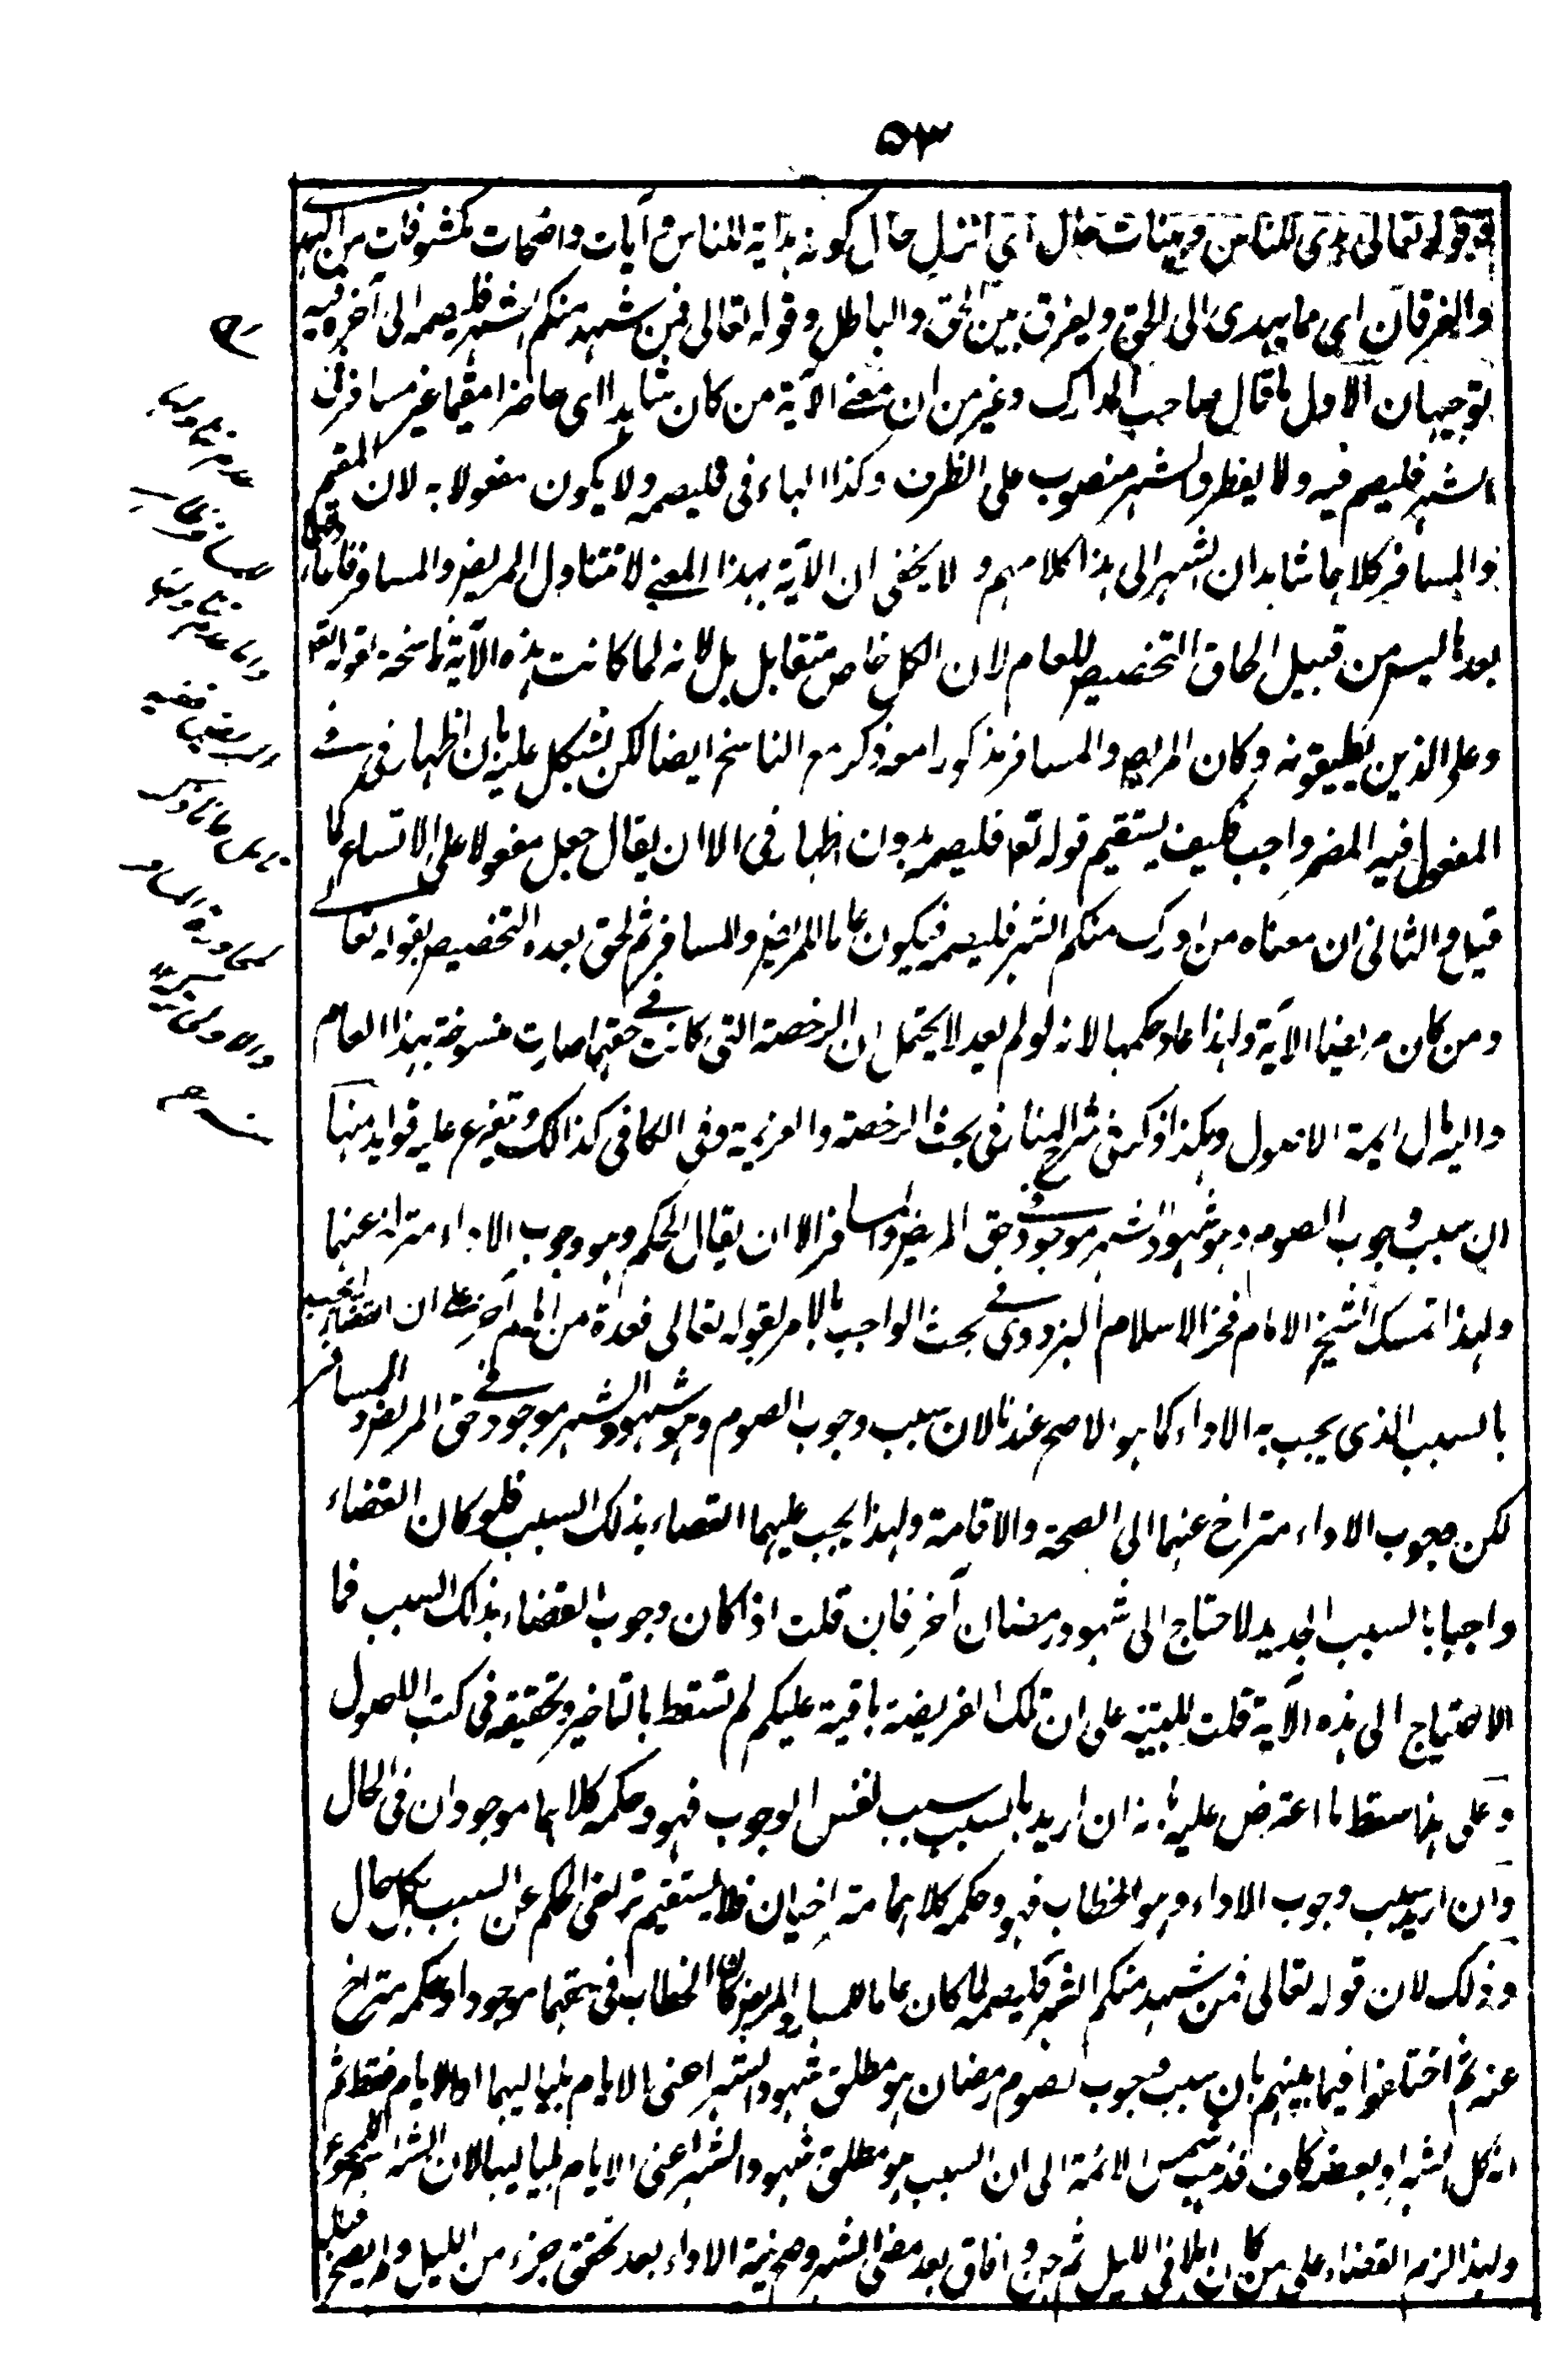 ۵۳
فقوله تعالى هدى للناس وبينات حال اى انزل حال كونه هداية للناس و آيات واضحات مكشوفات من الهدى
والفرقان اى مما يهدى الى الحق ويفرق بين الحق والباطل وقوله تعالى فمن شهد منكم الشهر فليصمه الى آخره فيه
توجيهان الاول ما قال صاحب المدارك وغيره من ان معنى الآية من كان شاهدا اى حاضرا مقيما غير مسافر فى
الشهر فليصم فيه ولا يفطر والشهر منصوب على الظرف وكذا الهاء فى فليصمه ولا يكون مفعولا به لان المقيم
والمسافر كلاهما شاهدان للشهر الى هذا كلامهم و لا يخفى ان الآية بهذا المعنى لا تتناول المريض والمسافر فاعادة
بعدها ليس من قبيل الحاق التخصيص للعام لان الكل خاص متقابل بل لانه لما كانت هذه الآية ناسخة لقوله تعم
وعلى الذين يطيقونه وكان المريض والمسافر مذكورا معه ذكر مع الناسخ ايضا لكن يشكل عليه بان اظهار فى فى
المفعول فيه المضمر واجب فكيف يستقيم قوله تعم فليصمه بدون اظهار فى الا ان يقال جعل مفعولا على الاتساع كما
قيل والثانى ان معناه من ادرك منكم الشهر فليصمه فيكون عاما للمريض والمسافر ثم لحق بعده التخصيص بقوله تعالى
ومن كان مريضا الآية ولهذا اعاد حكمهما لانه لو لم يعد لا يحتمل ان الرخصة التى كانت فى حقهما صارت منسوخة بهذا العام
واليه مال ايمة الاصول وهكذا ذكر فى شرح المنار فى بحث الرخصة والعزيمة وفى الكافى كذالك وتفرع عليه فوايد منها
ان سبب وجوب الصوم وهو شهود الشهر موجود فى حق المريض والمسافر الا ان يقال الحكم وهو وجوب الاداء متراخ عنهما
ولهذا تمسك الشيخ الامام فخر الاسلام البزدوى فى بحث الواجب بالامر بقوله تعالى فعدة من ايام اخر على ان القضاء يجب
بالسبب الذى يجب به الاداء كما هو الاصح عندنا لان سبب وجوب الصوم وهو شهود الشهر موجود فى حق المريض والمسافر
لكن وجوب الاداء متراخ عنهما الى الصحة والاقامة ولهذا يجب عليهما القضاء بذلك السبب فلو كان القضاء
واجبا بالسبب الجديد لاحتاج الى شهود رمضان آخر فان قلت اذا كان وجوب القضاء بذلك السبب فما
الاحتياج الى هذه الآية قلت للتنبيه على ان تلك الفريضة باقية عليكم لم تسقط بالتاخير وتحقيقه فى كتب الاصول
وعلى هذا سقط ما اعترض عليه بانه ان اريد بالسبب سبب نفس الوجوب فهو وحكمه كلاهما موجودان فى الحال
وان اريد سبب وجوب الاداء وهو الخطاب فهو وحكمه كلاهما متراخيان فلا يستقيم تراخى الحكم عن السبب بكل حال
وذلك لان قوله تعالى فمن شهد منكم الشهر فليصمه لما كان عاما للمسافر والمريض كان الخطاب فى حقهما موجودا وحكمه متراخ
عنه ثم اختلفوا فيما بينهم بان سبب وجوب لصوم رمضان هو مطلق شهود الشهر اعنى بالايام بلياليها او الايام فقط ثم
انه كل الشهر او بعضه كاف فذهب شمس الائمة الى ان السبب هو مطلق شهود الشهر اعنى الايام بلياليها لان الشهر اسم للمجموع
ولهذا لزم القضاء على من كان اهلا فى الليل ثم جن وافاق بعد مضى الشهر وصح نية الاداء بعد تحقق جزء من الليل ولم يصح قبله